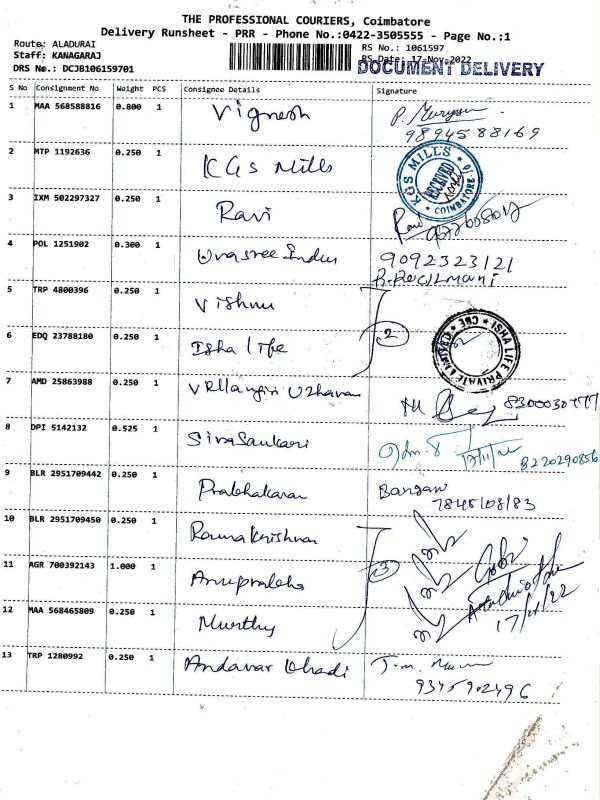 THE PROFESSIONAL COURIERS, Coimbatore
Delivery Runsheet - PRR - Phone No.:0422-3505555 - Page No.:1
Route: ALADURAI
RS No.: 1061597
Staff: KANAGARAJ
RS Date: 17-Nov-2022
DRS No.: DCJB106159701
DOCUMENT DELIVERY
S No Consignment No Weight PCS Consignee Details Signature
1 MAA 568588816 0.800 1 Vignesh P.
9894588169
2 MTP 1192636 0.250 1 KGS Mills
KGS MILLS RECEIVED COIMBATORE
3 IXM 502297327 0.250 1 Ravi Ravi
4 POL 1251902 0.300 1 9092323121
5 TRP 4800396 0.250 1 Vishnu
2
6 EDQ 23788180 0.250 1 Isha life
ISHA LIFE PRIVATE LIMITED CBE
7 AMD 25863988 0.250 1
8 DPI 5142132 0.525 1 Sivasankari 17/11/22
8220290856
9 BLR 2951709442 0.250 1 Prabhakaran
10 BLR 2951709450 0.250 1 Ramakrishnan
3
11 AGR 700392143 1.000 1 Anuprabha
17/11/22
12 MAA 568465809 0.250 1 Murthy
13 TRP 1280992 0.250 1 J.m.
9345902496